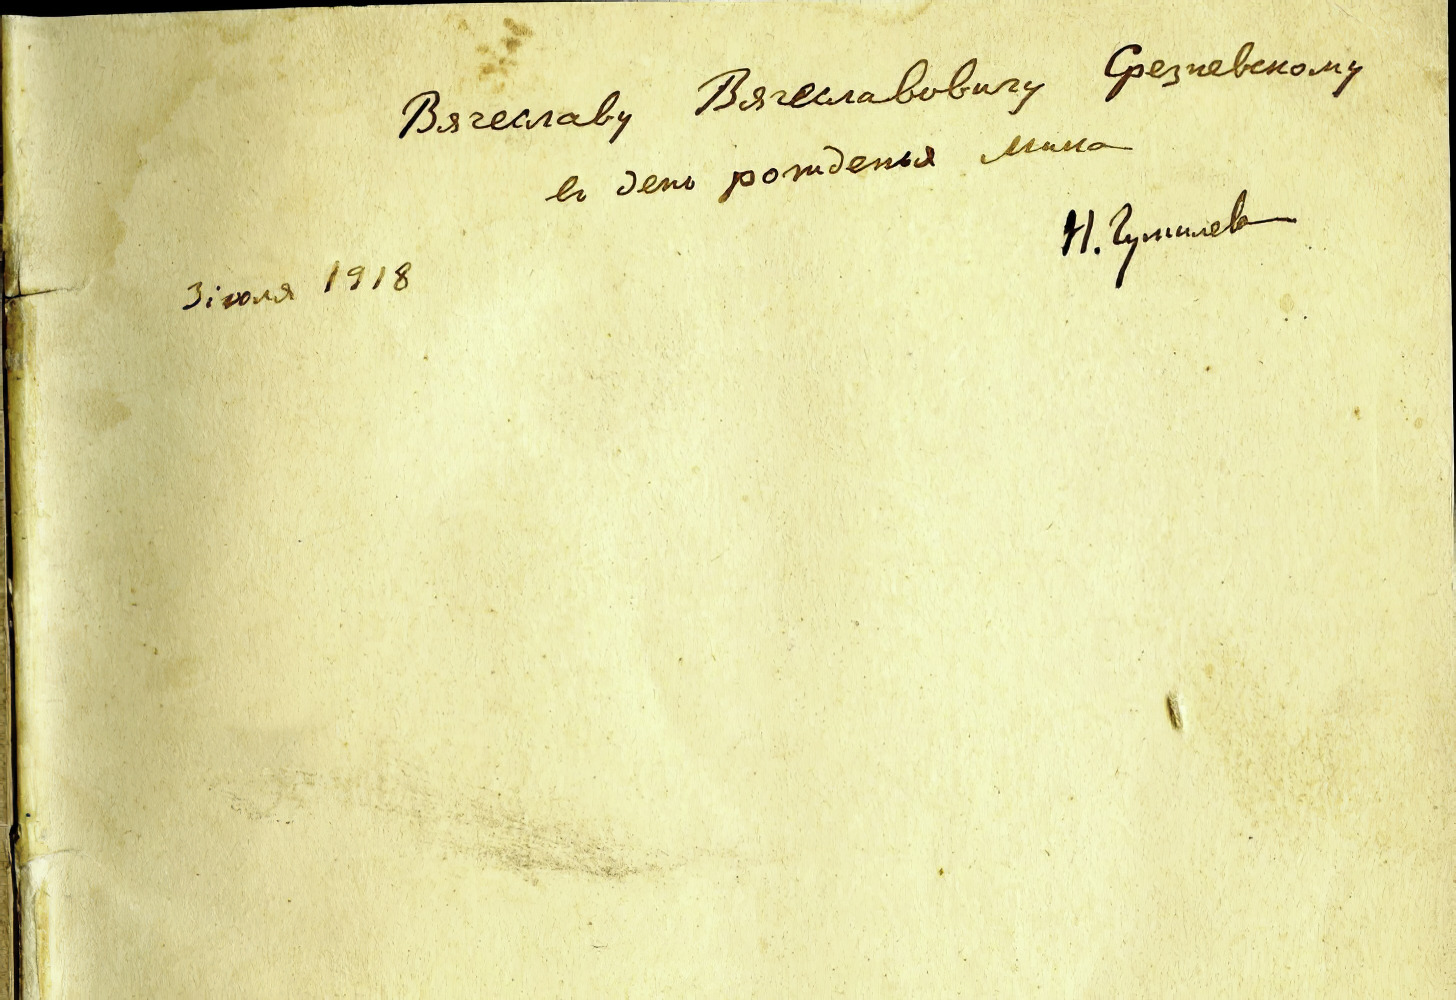 Вячеславу Вячеславовичу Срезневскому
въ день рожденья Мика
Н. Гумилевъ
3 іюля 1918